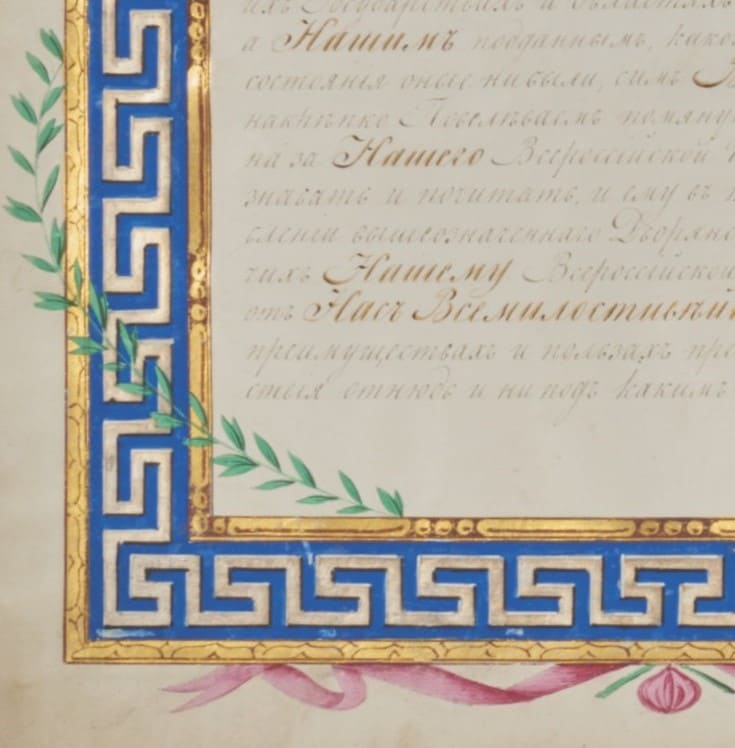 ихъ Государствахъ и Областяхъ
а Нашимъ подданнымъ, како
состоянія оные нибыли, симъ
накрѣпко Повелѣваемъ помяну
на за Нашего Всероссійской
знавать и почитать, и ему въ
вленіи вышеозначеннаго Дворянс
чихъ Нашему Всероссійской
отъ Насъ Всемилостивѣй
преимуществахъ и пользахъ пре
ствія отнюдь и ни подъ какимъ